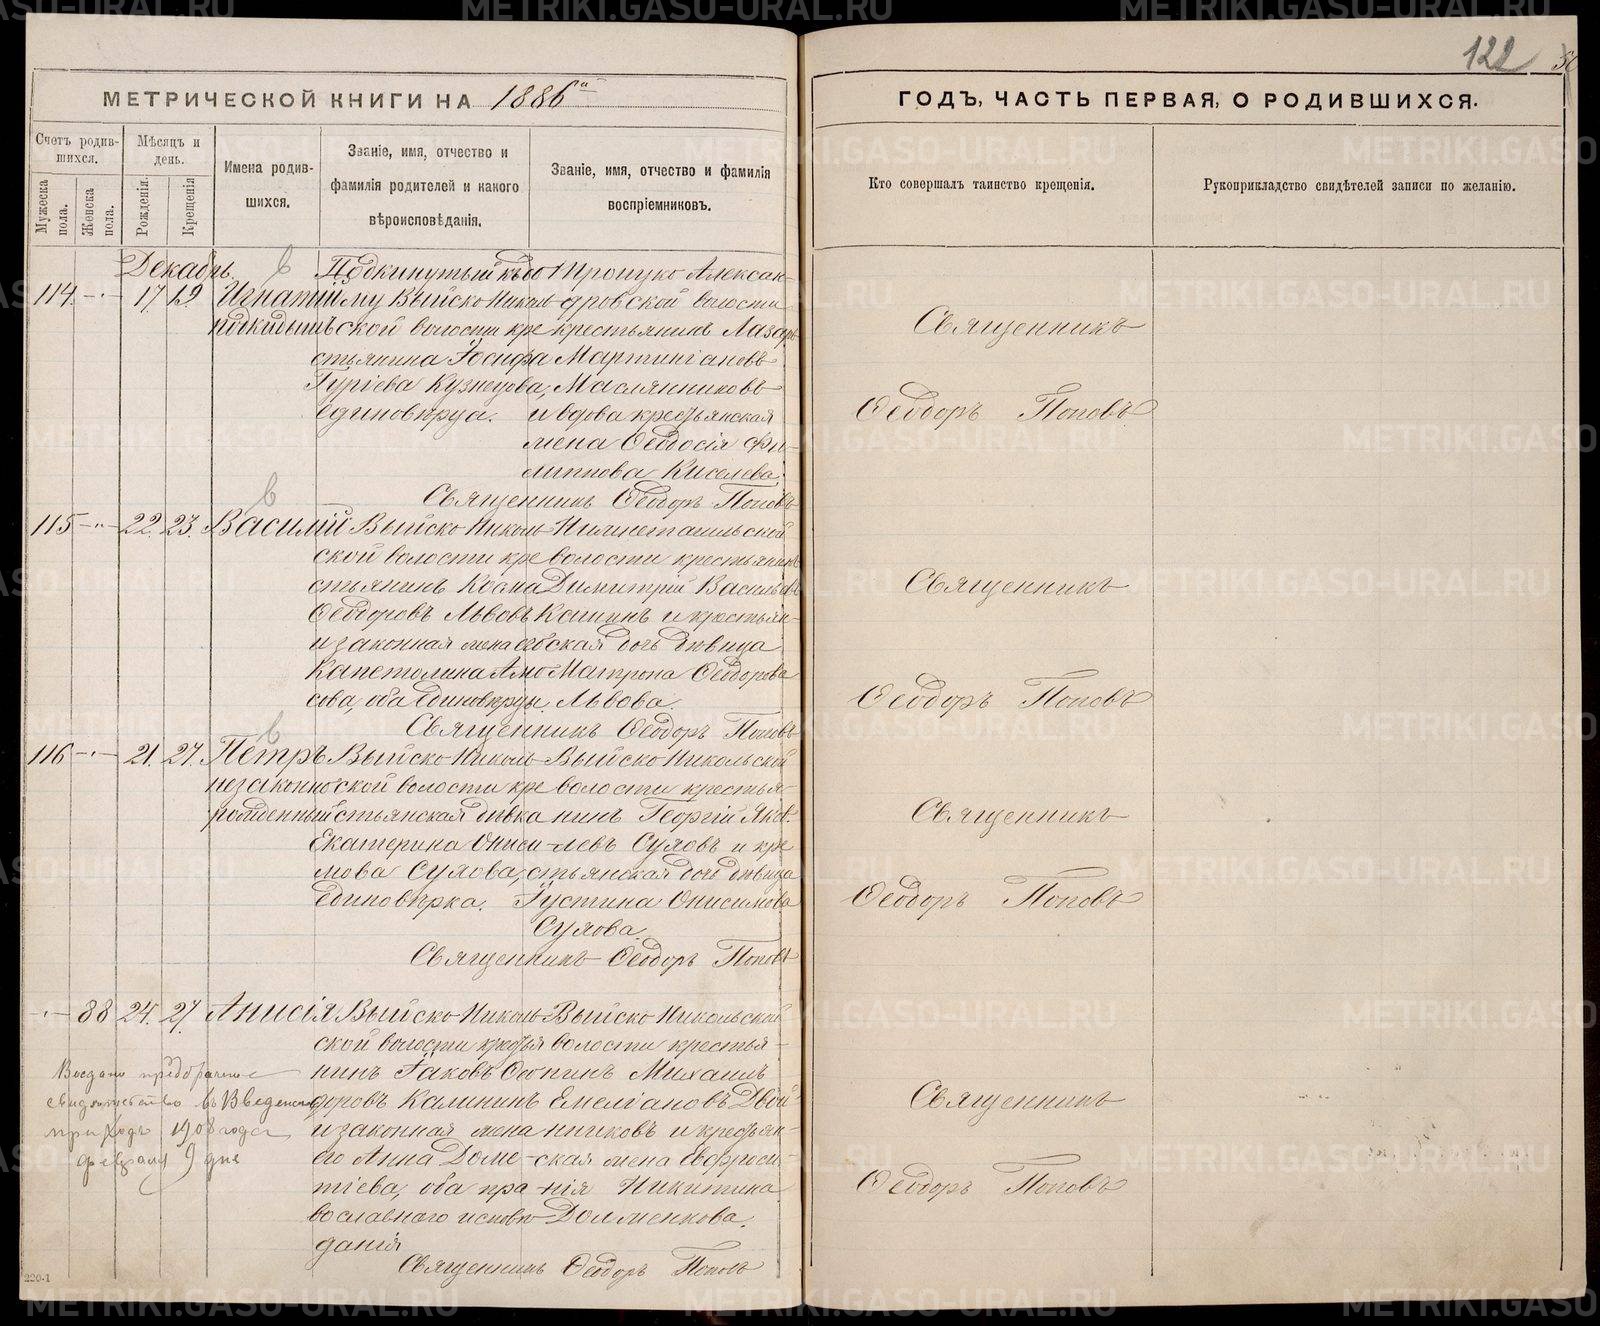 122
МЕТРИЧЕСКОЙ КНИГИ НА 1886й
ГОДЪ, ЧАСТЬ ПЕРВАЯ, О РОДИВШИХСЯ.
Счетъ родив-
шихся.
Мужеска пола.
Женска пола.
Мѣсяцъ и день.
Рожденія.
Крещенія
Имена родив-
шихся.
Званіе, имя, отчество и
фамилія родителей и какого
вѣроисповѣданія.
Званіе, имя, отчество и фамилія
воспріемниковъ.
Кто совершалъ таинство крещенія.
Рукоприкладство свидѣтелей записи по желанію.
Декабрь
114. 17. 19. Игнатій
подкидышъ
Подкинутый къ до
му Выйско-Николь
ской волости кре
стьянина Іосифа
Гуріева Кузнецова,
единовѣрца.
Алексан-
дровской волости
крестьянинъ Лазарь
Мартиніановъ
Маслянниковъ
и вдова крестьянская
жена Ѳеодосія Фи-
липпова Киселева.
Священникъ Ѳеодоръ Поповъ
Священникъ
Ѳеодоръ Поповъ.
115 22. 23. Василій
Выйско Николь
ской волости кре
стьянинъ Косма
Ѳеодоровъ Львовъ
и законная жена
Капетолина
сова, оба единовѣрцы.
Нижнетагильской
волости крестьянинъ
Димитрій Васильевъ
и крестьян-
ская дочь дѣвица
Матрона Ѳеодорова
Львова.
Священникъ Ѳеодоръ Поповъ
Священникъ
Ѳеодоръ Поповъ
116 21. 27. Петръ
незаконно
рожденный
Выйско-Николь
ской волости кре
стьянская дѣвка
Екатерина Ониси
мова Сулова,
единовѣрка.
Выйско Никольской
волости крестья-
нинъ Георгій Яков-
левъ Суловъ и кре
стьянская дочь дѣвица
Іустина Онисимова
Сулова.
Священникъ Ѳеодоръ Поповъ
Священникъ
Ѳеодоръ Поповъ
88 24. 27. Анисія
Выйско-Николь
ской волости крестья
нинъ Іаковъ Ѳео
доровъ Калининъ
и законная жена
его Анна Доме-
тіева, оба пра
вославнаго исповѣ
данія
Выйско Никольской
волости крестья-
нинъ Михаилъ
Емеліановъ Двой-
никовъ и крестьян-
ская жена Евфроси-
нія Никитина
Долженкова.
Священникъ Ѳеодоръ Поповъ
Выдано предбрачное
свидѣтельство въ Введенскій
приходъ 1908 года
февраля 9 дне
Священникъ
Ѳеодоръ Поповъ
220-1
METRIKI.GASO-URAL.RU